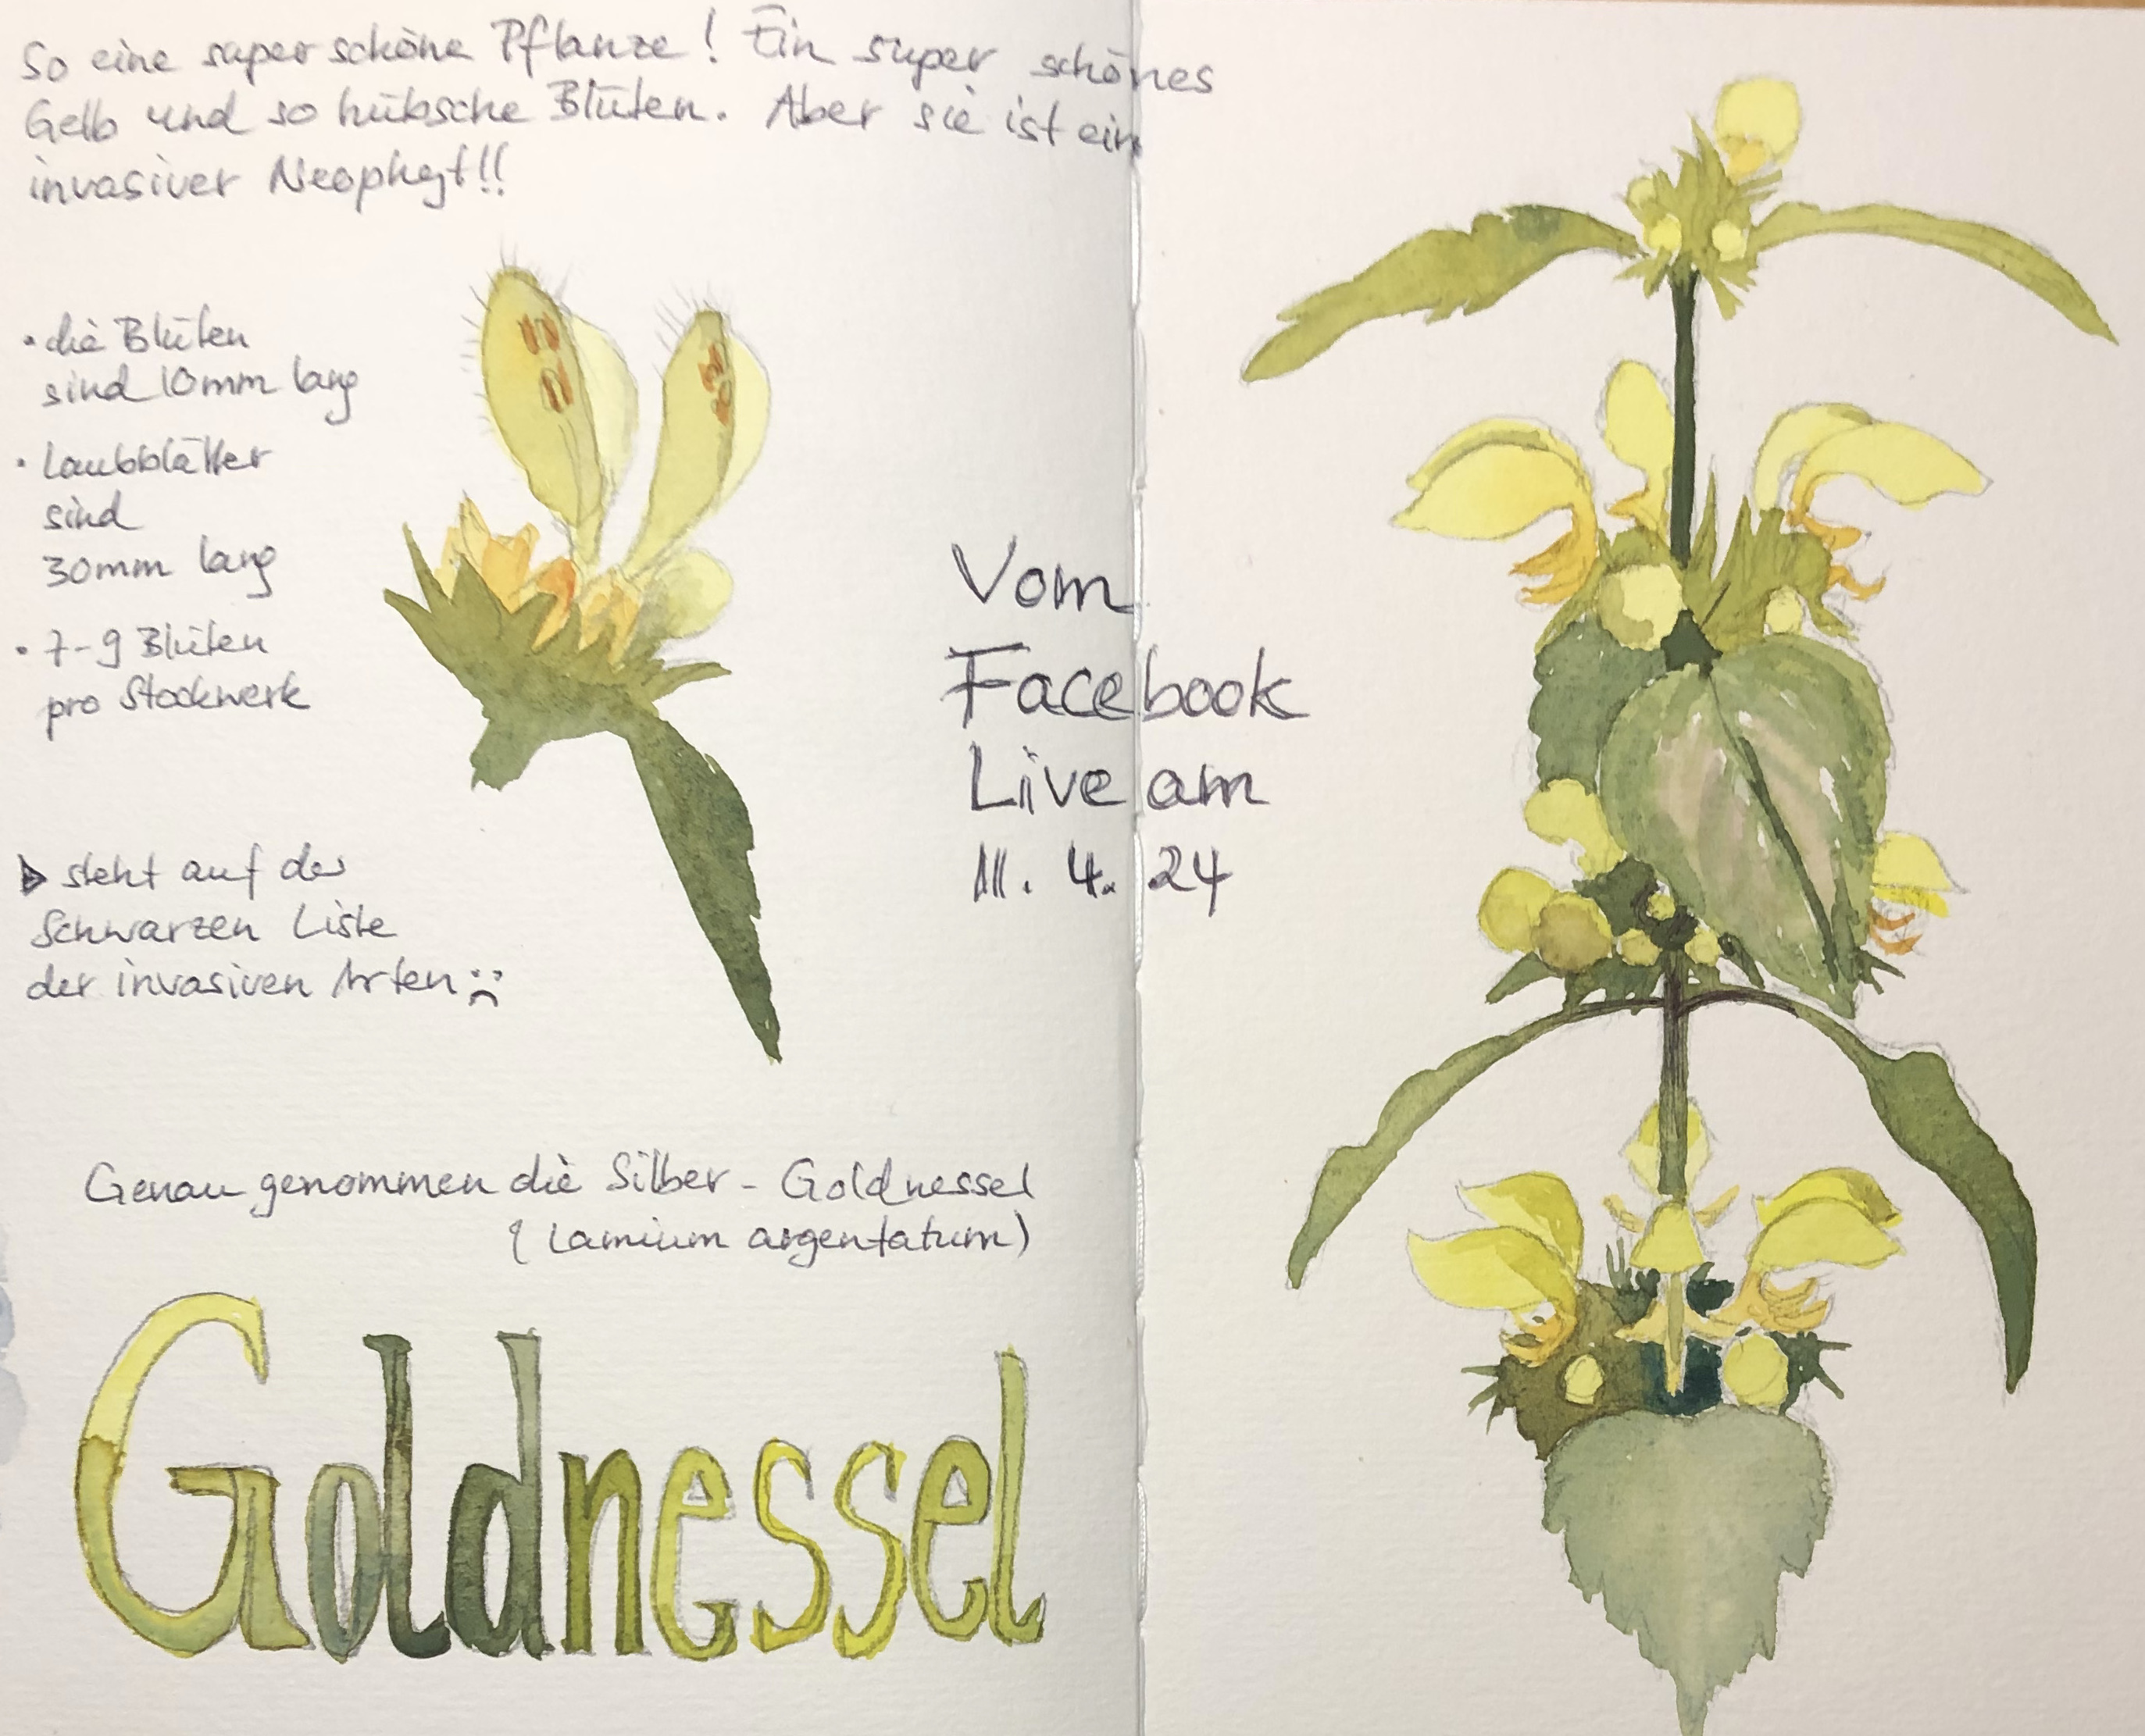 So eine super schöne Pflanze! Ein super schönes
Gelb und so hübsche Blüten. Aber sie ist ein
invasiver Neophyt!!
• die Blüten
sind 10mm lang
• Laubblätter
sind
30mm lang
• 7-9 Blüten
pro Stockwerk
▶ steht auf der
Schwarzen Liste
der invasiven Arten :(
Vom
Facebook
Live am
11. 4. 24
Genau genommen die Silber-Goldnessel
(Lamium argentatum)
Goldnessel